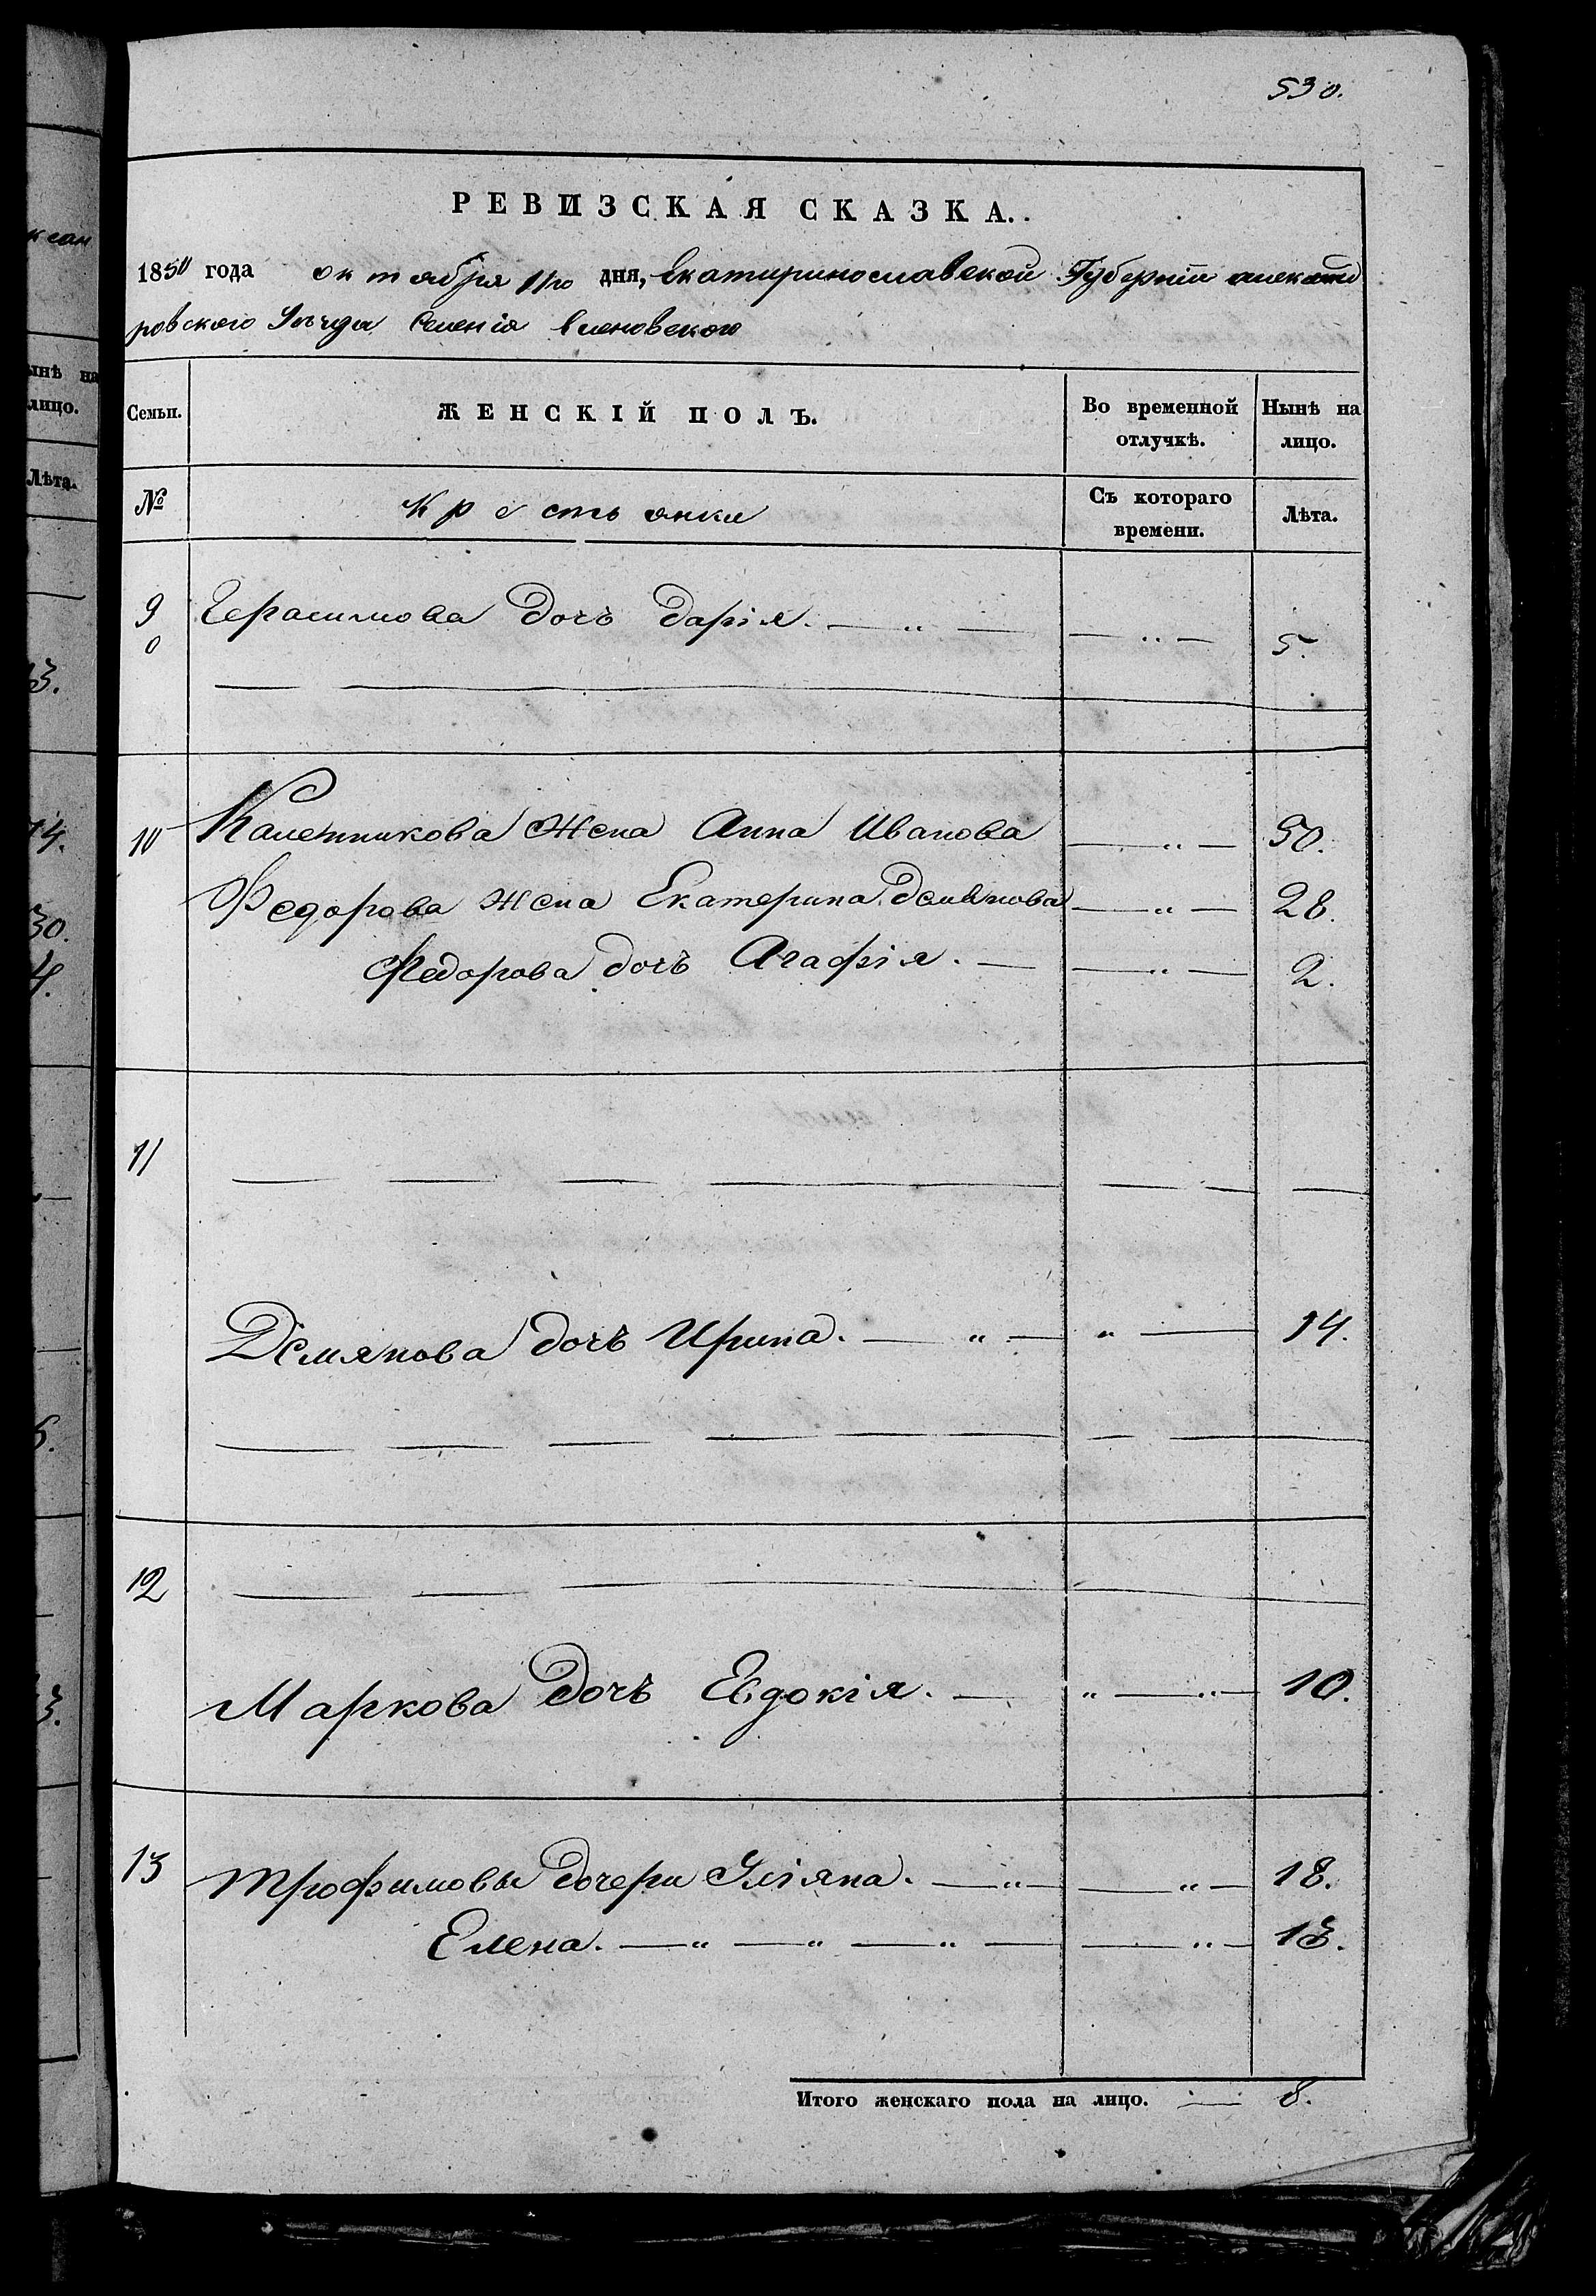 530.
РЕВИЗСКАЯ СКАЗКА.
1850 года октября 11го дня, Екатиринославской Губерніи александ
ровского Уѣзда Селенія
Семьи. ЖЕНСКІЙ ПОЛЪ. Во временной отлучкѣ. Нынѣ на лицо.
№ Крестьянки Съ котораго времени. Лѣта.
9 Герасимова дочь Дарія. — „ — — „ — 5.
0
10 Калетникова жена Анна Иванова — „ — 50.
Федорова жена Екатерина Демянова — „ — 28.
Федорова дочь Агафія. — — „ — 2.
11
Демянова дочь Ирина. — „ — „ — 14.
12
Маркова дочь Евдокія. — „ — „ — 10.
13 Трофимовы дочери Уліяна. — „ — — „ — 18.
Елена. — „ — „ — „ — — „ — 13.
Итого женскаго пола на лицо. — 8.
ксан
ынѣ на
лицо.
Лѣта.
3.
14.
30.
4.
3.